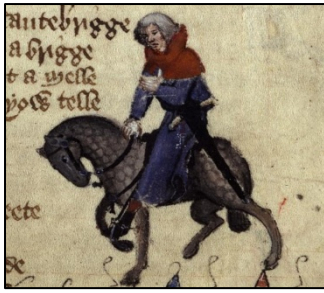 antebrigge
a brigge
t a melle
yow telle
eete
de